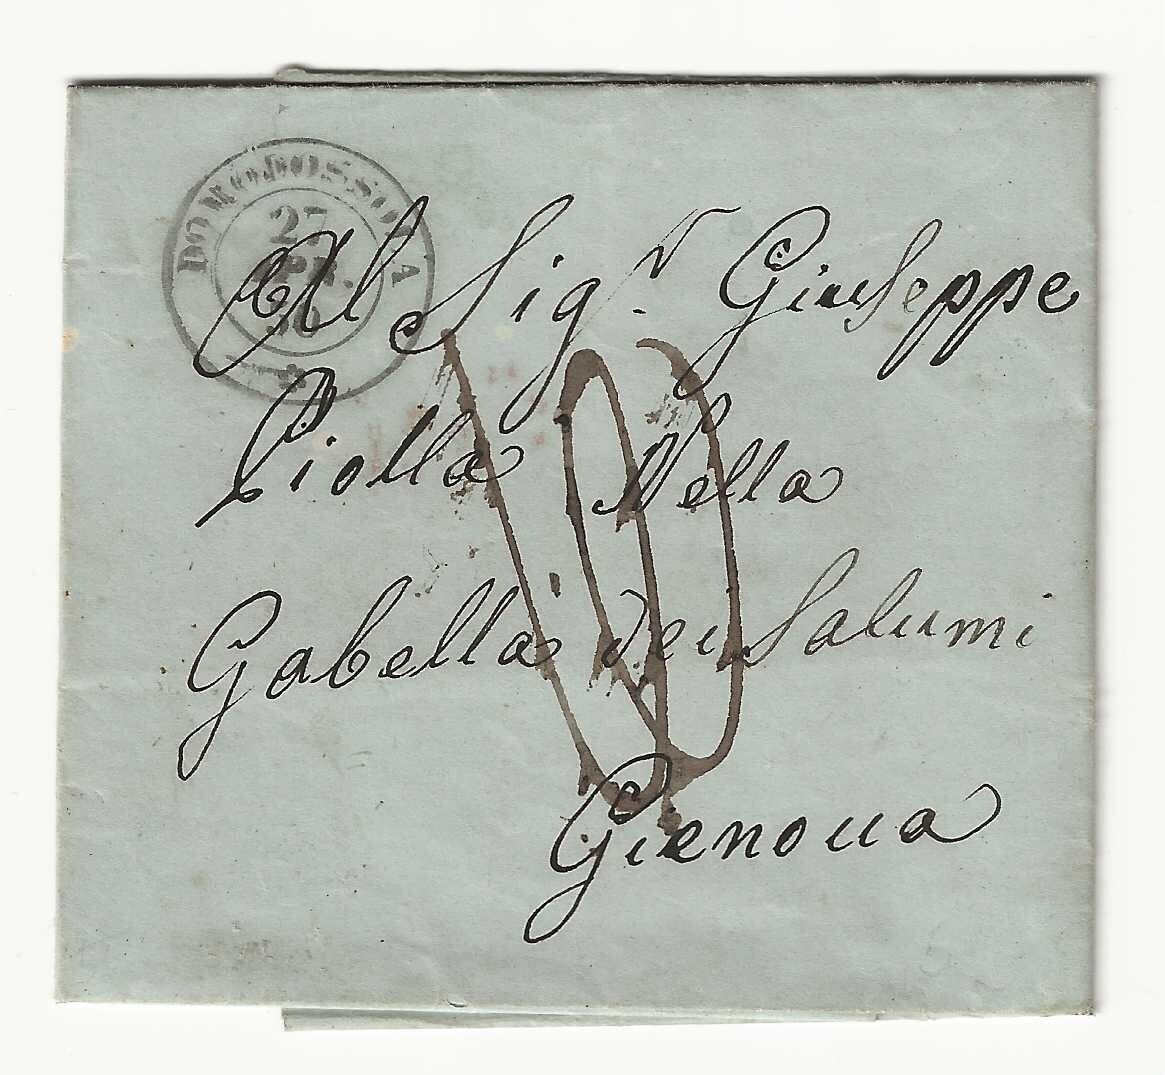 DOMODOSSOLA
27
APR.
50
Al Sig.r Giuseppe
Piolla Nella
Gabella dei Salumi
Gienoua